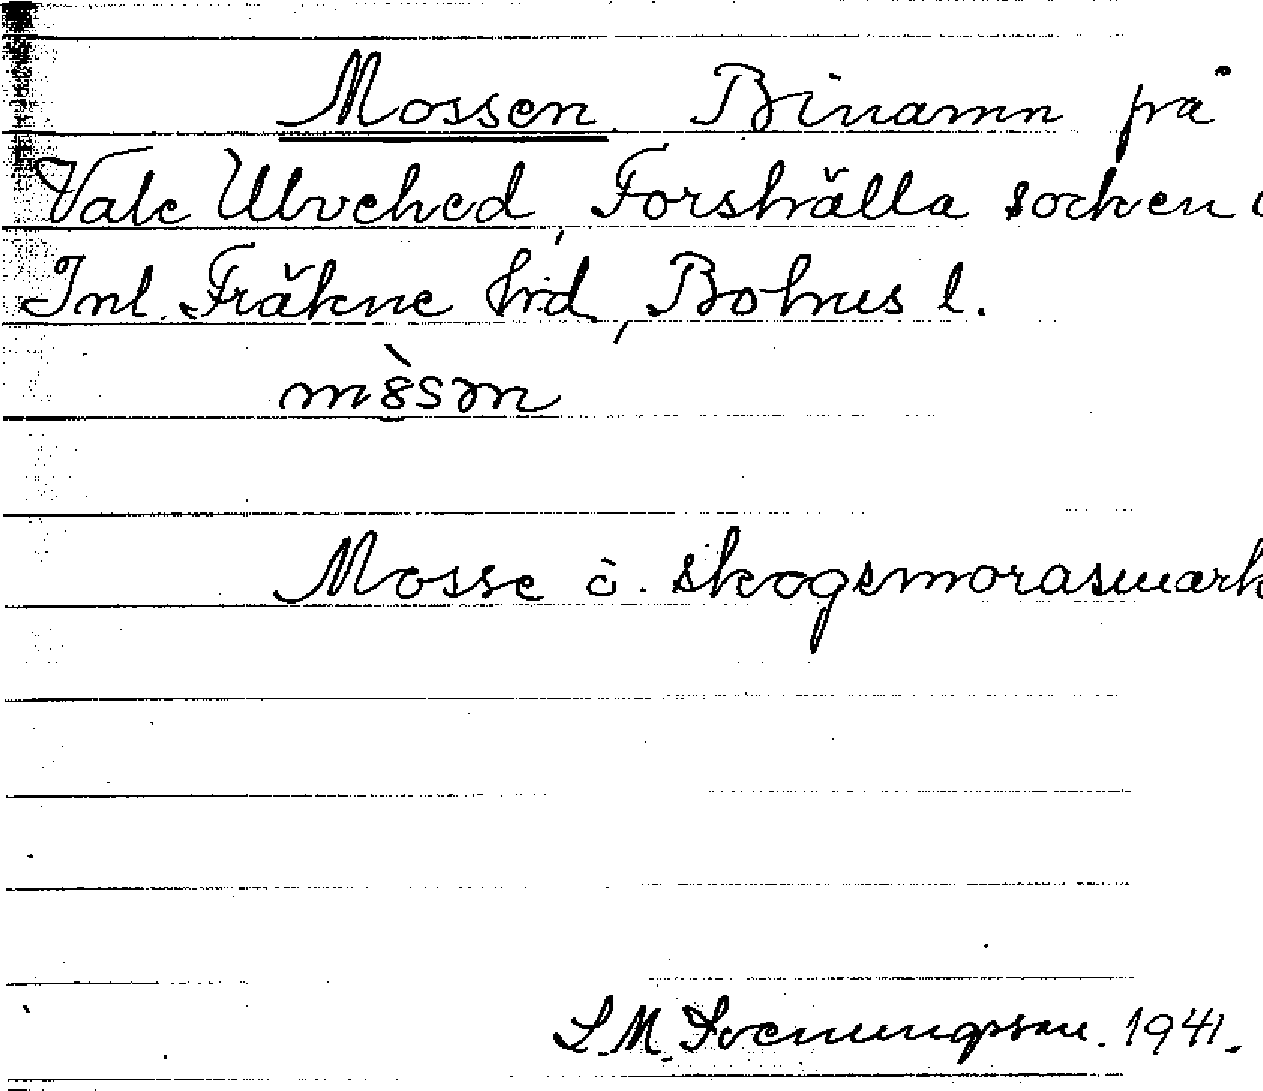 Mossen Binamn på
Vale Ulvehed, Forshälla socken i
Inl. Fräkne hd, Bohus l.
mösən
Mosse o. skogsmorasmark
S.M. Svenungsson. 1941.